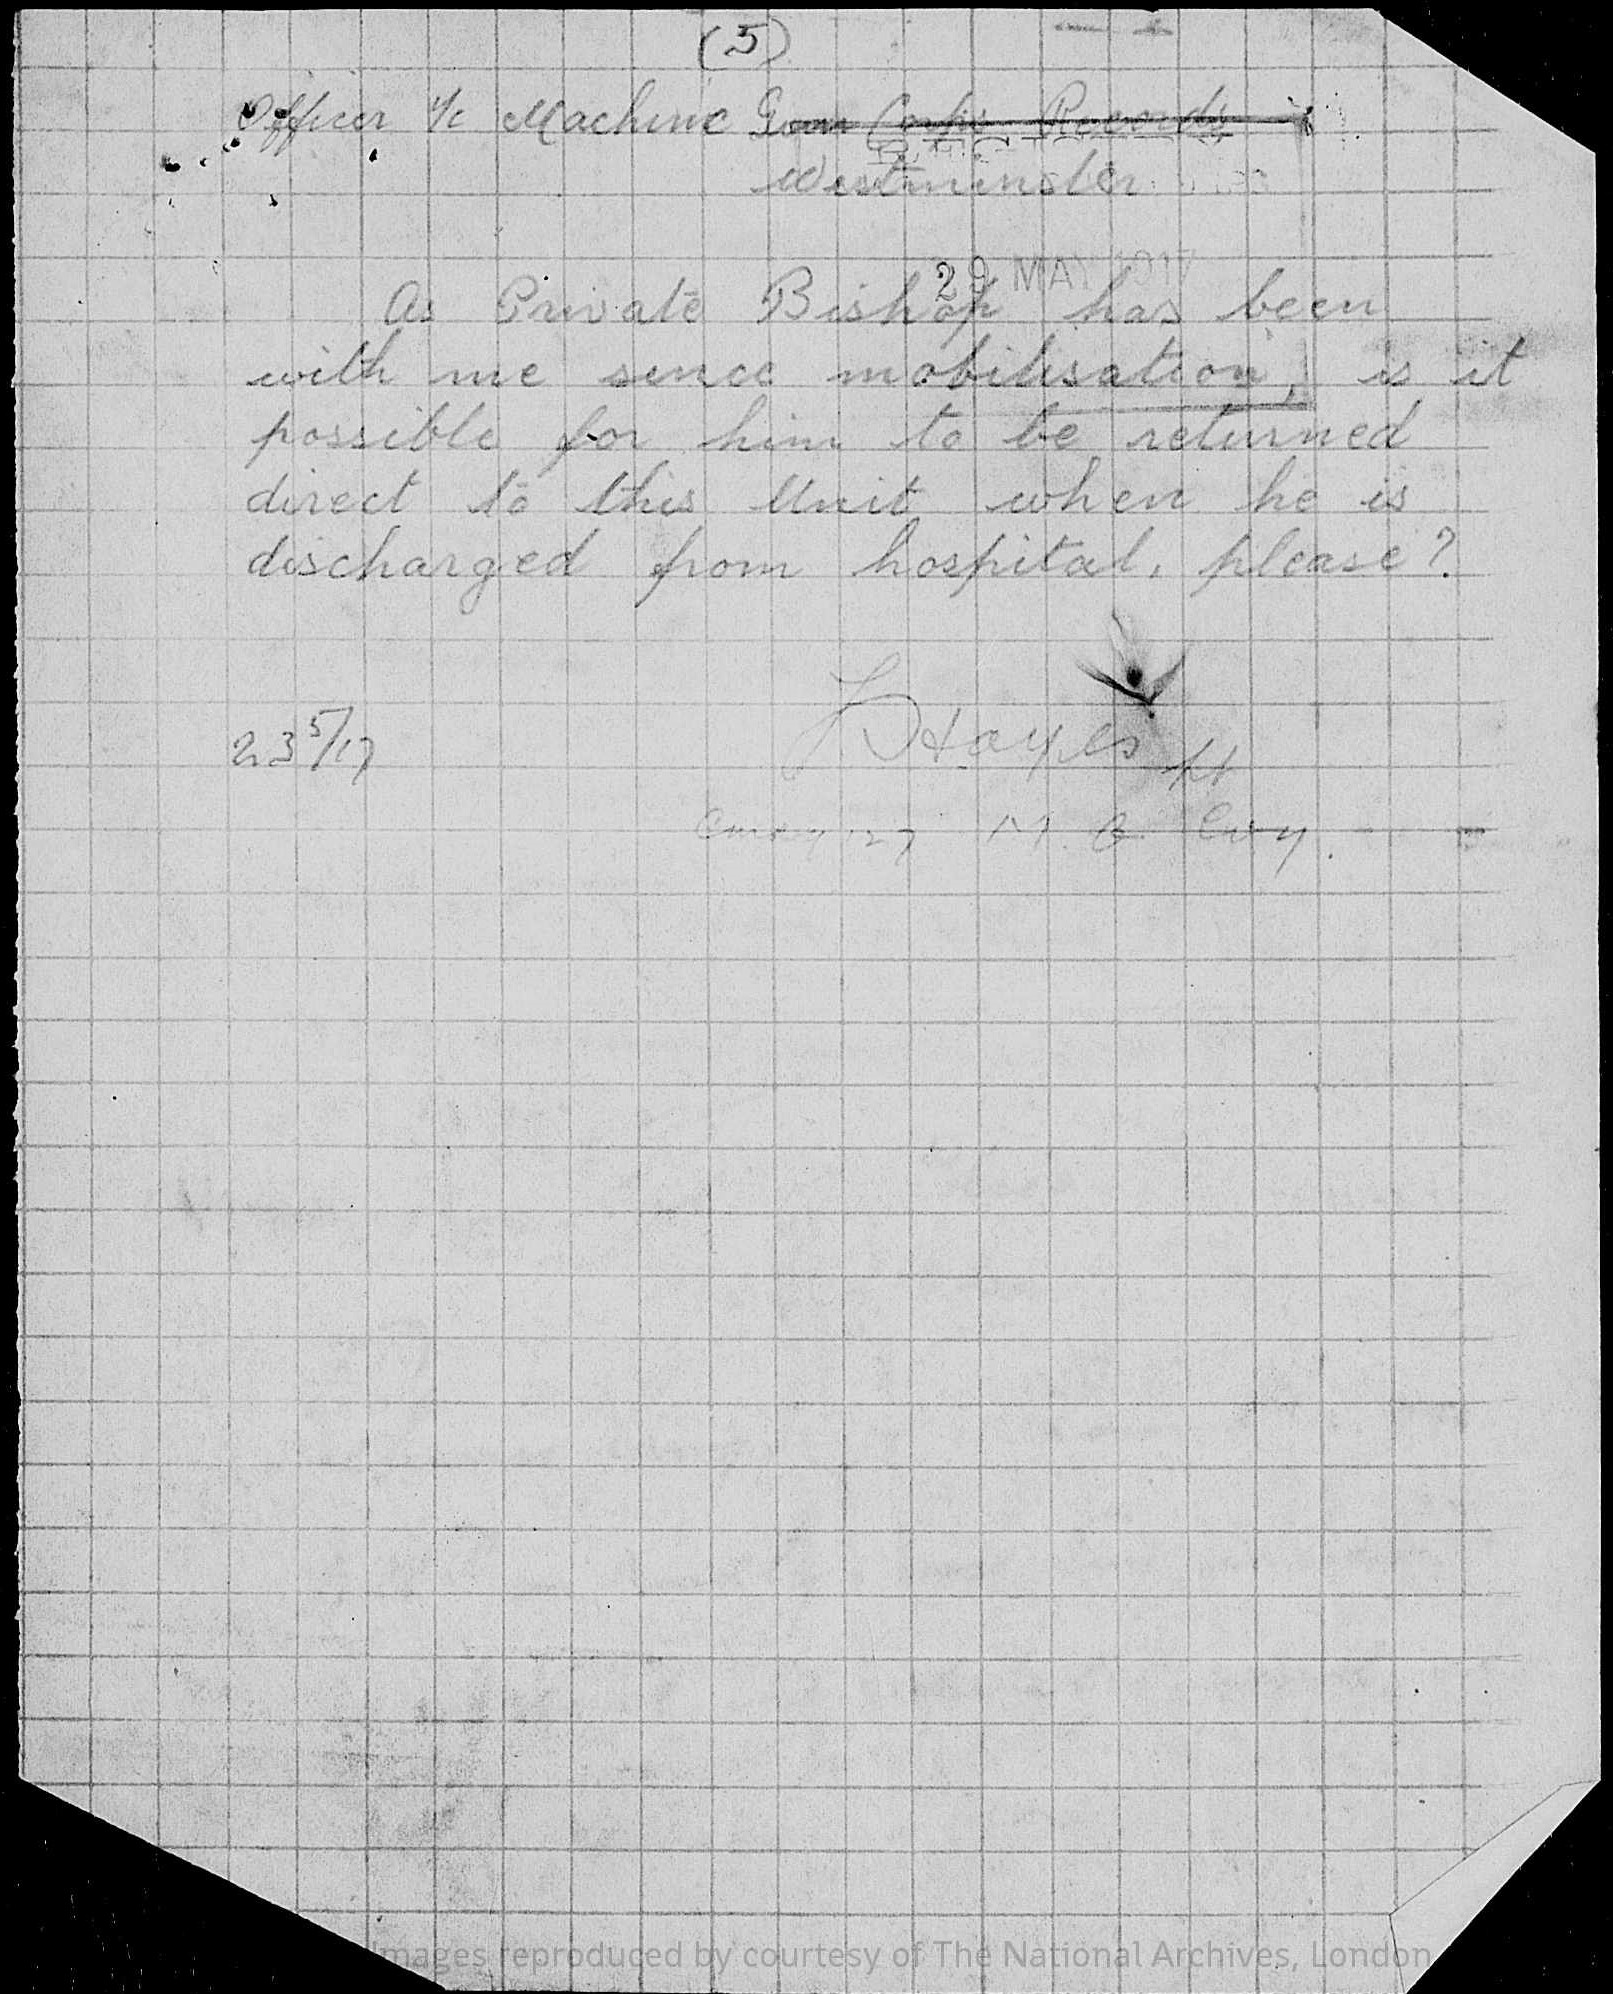 (5)
Officer i/c Machine Gun Corps Records
Westminster
29 MAY 1917
As Private Bishop has been
with me since mobilisation, is it
possible for him to be returned
direct to this Unit when he is
discharged from hospital, please?
23 5/17
Hayes Lt
127 M. G. Coy.
Images reproduced by courtesy of The National Archives, London